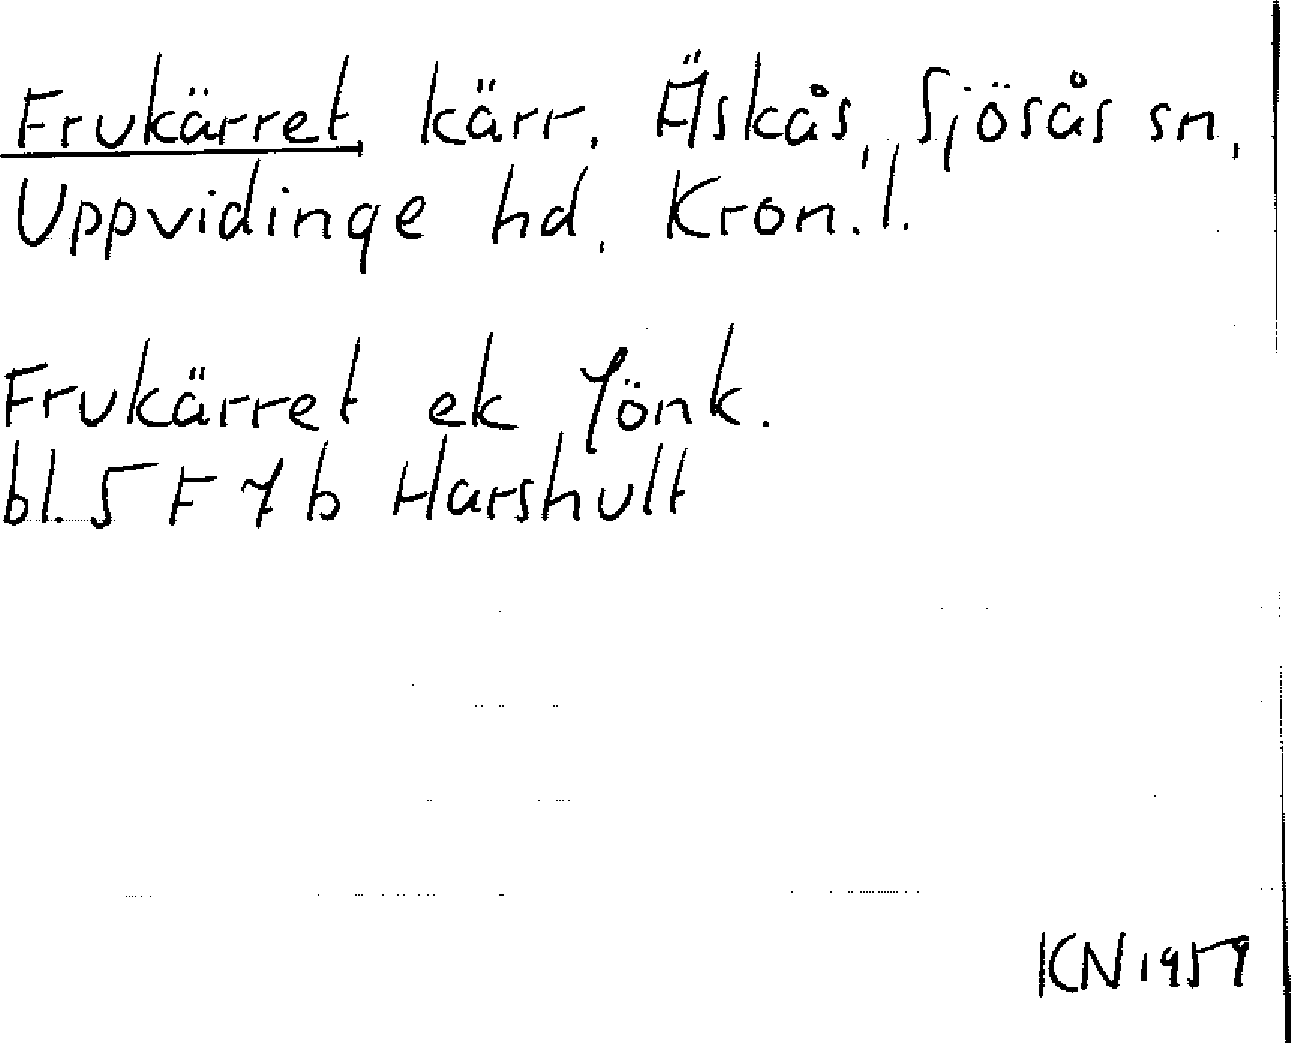 Frukärret, kärr, Äskås, Sjösås sn,
Uppvidinge hd, Kron. l.
Frukärret ek Jönk.
bl. 5 F 7 b Harshult
KN 1959